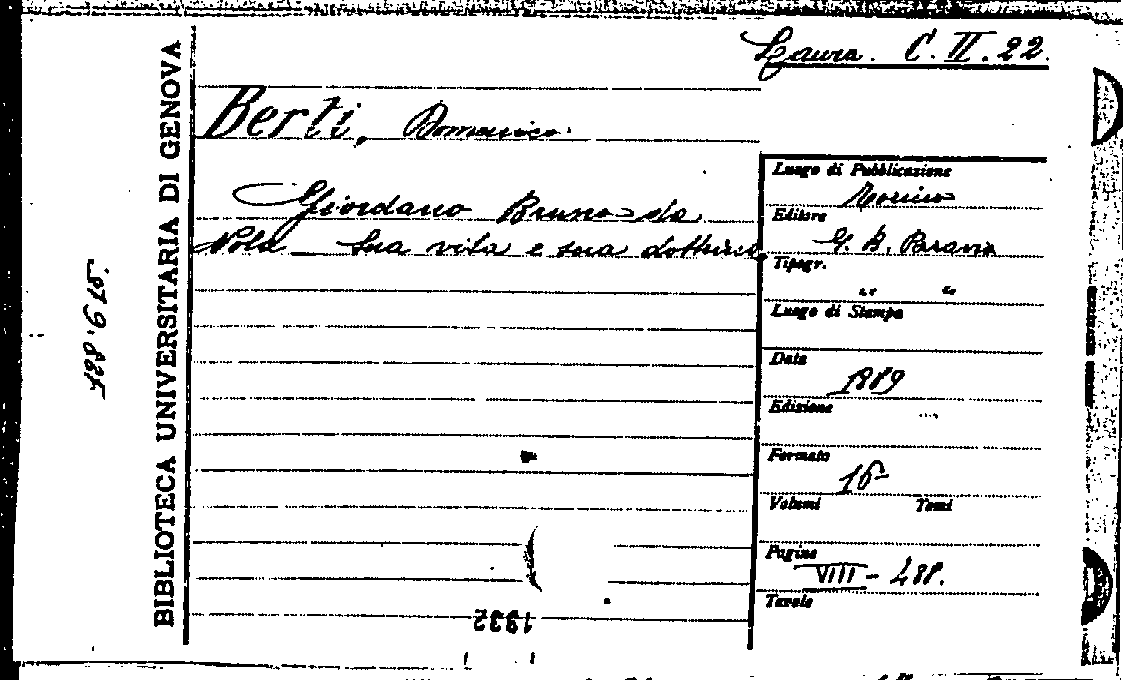 Laura. C. II. 22.
BIBLIOTECA UNIVERSITARIA DI GENOVA
Berti, Domenico.
Giordano Bruno da
Nola Sua vita e sua dottrina.
Luogo di Pubblicazione
Torino
Editore
G. B. Paravia
Tipogr.
" "
Luogo di Stampa
Data
1889
Edizione
Formato
16º
Volumi Tomi
Pagine
VIII - 488.
Tavole
1932